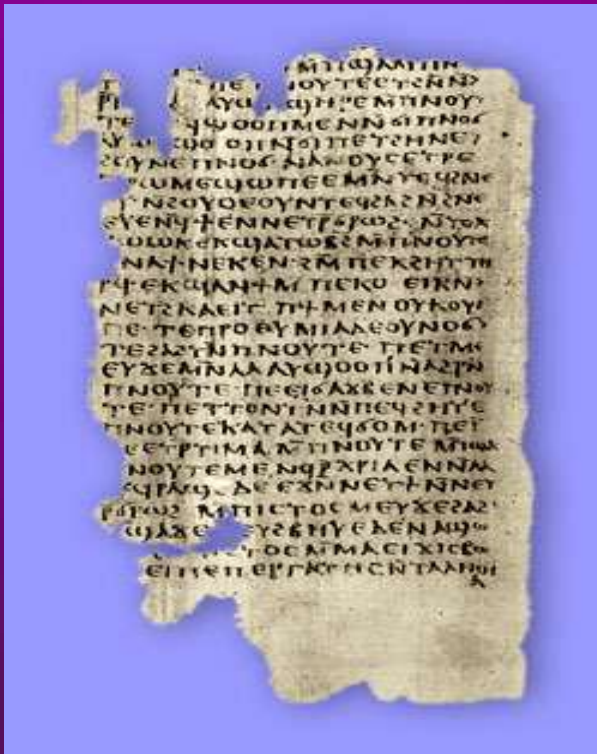 ⲙⲡϣⲁ ⲙⲡⲛ
ⲡⲉⲧ ⲛⲟⲩⲧⲉ ⲉⲧϩⲛⲛ
ⲁⲩⲱ ϣⲏⲣⲉ ⲙⲡⲛⲟⲩ
ⲧⲉ ϥϣⲟⲟⲡ ⲙⲉⲛ ⲛϭⲓ ⲡⲛⲟϭ
ⲁⲩⲱ ϣⲟⲟⲡ ⲛϭⲓ ⲡⲉⲧϩⲏⲛ ⲉ
ϩⲟⲩⲛ ⲉⲡⲛⲟϭ ⲁⲛⲁⲛⲟⲩⲥ ⲉⲧⲣⲉ
ⲣⲱⲙⲉ ϣⲱⲡⲉ ⲉⲙⲛⲧⲉϥϩⲛⲉ
ⲛϩⲟⲩⲟ ⲉⲟⲩⲛⲧⲉϥ ϩⲁϩ ⲛϩⲛⲉ
ⲉⲩⲉⲛϥϯ ⲉⲛ ⲛⲉⲧⲣϭⲣⲱϩ ⲛⲧⲟⲕ
ϩⲱⲱⲕ ⲉⲕϣⲁⲧⲱⲃϩ ⲙⲡⲛⲟⲩⲧⲉ
ⲛⲁϯ ⲛⲉⲕ ⲉⲛ ϩⲙ ⲡⲉⲕϩⲏⲧ ⲧⲏ
ⲣϥ ⲉⲕϣⲁⲛϯ ⲙⲡⲉⲕⲟⲉⲓⲕ ⲛ
ⲛⲉⲧϩⲕⲁⲉⲓⲧ ⲡϯ ⲙⲉⲛ ⲟⲩⲕⲟⲩⲓ
ⲡⲉ ⲧⲉⲡⲣⲟⲑⲩⲙⲓⲁ ⲇⲉ ⲟⲩⲛⲟϭ
ⲧⲉ ϩⲁϩⲧⲛ ⲡⲛⲟⲩⲧⲉ ⲡⲉⲧⲙⲉ
ⲉⲩⲉ ϫⲉ ⲙⲛ ⲗⲁⲁⲩ ϣⲟⲟⲡ ⲛⲛⲁϩⲣⲛ
ⲡⲛⲟⲩⲧⲉ ⲡⲉⲉⲓ ϭⲁϫⲃ ⲉⲛ ⲉⲡⲛⲟⲩ
ⲧⲉ ⲡⲉⲧⲧⲟⲛⲧⲛ ⲛⲡⲉϥϩⲏⲧ ⲉ
ⲡⲛⲟⲩⲧⲉ ⲕⲁⲧⲁ ⲧⲉϥϭⲟⲙ ⲡⲉⲓ
ⲡⲉ ⲉⲧⲣⲧⲓⲙⲁ ⲙⲡⲛⲟⲩⲧⲉ ⲙⲡϣⲁ
ⲡⲛⲟⲩⲧⲉ ⲙⲉⲛ ϥⲣ ⲭⲣⲓⲁ ⲉⲛ ⲛⲗⲁ
ϥⲣⲁϣⲉ ⲇⲉ ⲉϫⲛ ⲛⲉⲧϯ ⲛⲛⲉⲧ
ⲣϭⲣⲱϩ ⲙⲡⲓⲥⲧⲟⲥ ⲙⲉⲩϫⲉ ϩⲁϩ
ϣⲁϫⲉ ⲉⲩϩⲃⲏⲩⲉ ⲇⲉ ⲛⲁϣⲱ
ⲧⲟⲥ ⲙⲙⲁⲉⲓϫⲓⲥⲃⲱ
ⲉⲓ ⲡⲉ ⲡⲉⲣⲅⲁⲧⲏⲥ ⲛⲧⲁⲗⲏⲑⲓ
ⲁ